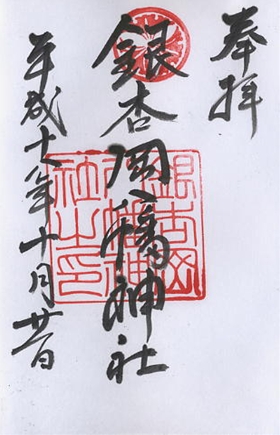 奉拝
銀杏岡八幡神社
平成十八年十月廿日
銀杏岡
八幡神
社之印